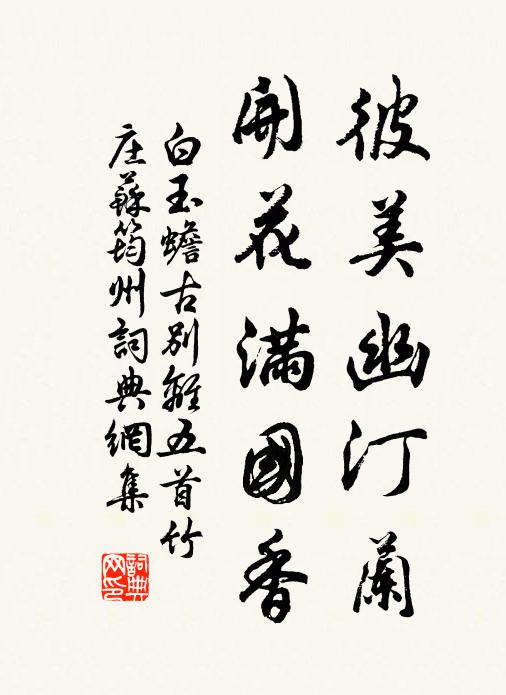 彼美幽汀蘭
開花滿國香
白玉蟾古別離五首竹
庄蘇筠州詞典網集
詞典網印